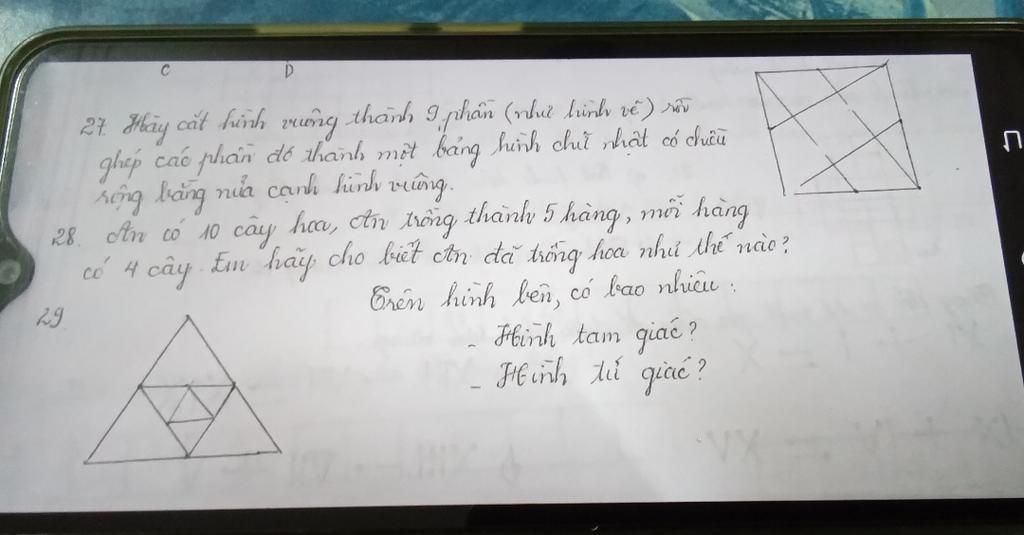 C D
27. Hãy cắt hình vuông thành 9 phần (như hình vẽ) rồi
ghép các phần đó thành một bảng hình chữ nhật có chiều
rộng bằng nửa cạnh hình vuông.
28. An có 10 cây hoa, An trồng thành 5 hàng, mỗi hàng
có 4 cây. Em hãy cho biết An đã trồng hoa như thế nào?
29. Trên hình bên, có bao nhiêu:
- Hình tam giác?
- Hình tứ giác?